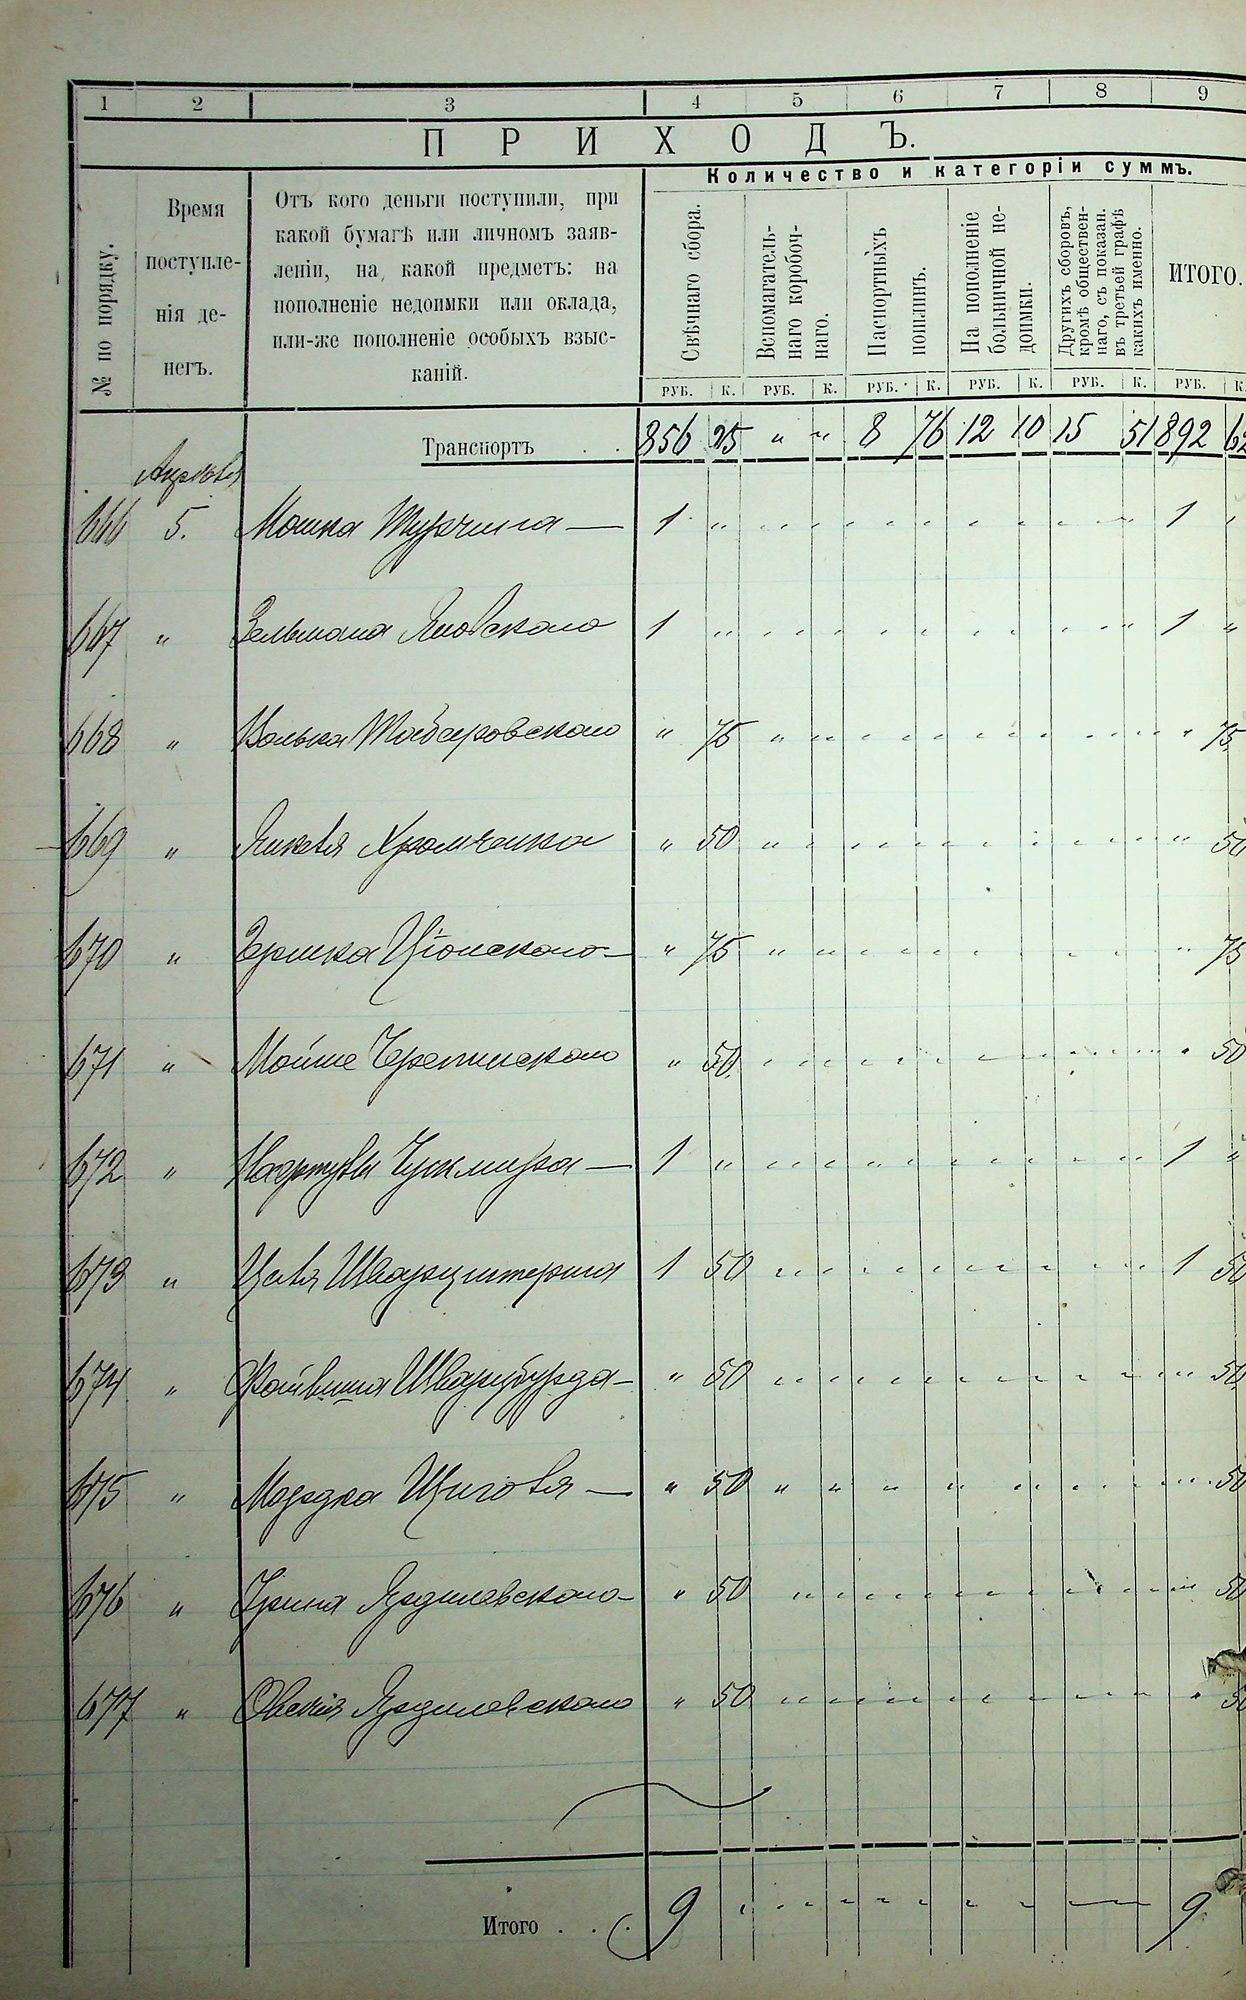 1 2 3 4 5 6 7 8 9
ПРИХОДЪ.
Количество и категоріи суммъ.
№ по порядку.
Время
поступле-
нія де-
негъ.
Отъ кого деньги поступили, при
какой бумагѣ или личномъ заяв-
леніи, на какой предметъ: на
пополненіе недоимки или оклада,
или-же пополненіе особыхъ взыс-
каній.
Свѣчнаго сбора.
Вспомагатель-
наго коробоч-
наго.
Паспортныхъ
пошлинъ.
На пополненіе
больничной не-
доимки.
Другихъ сборовъ,
кромѣ обществен-
наго, съ показан.
въ третьей графѣ
какихъ именно.
ИТОГО.
РУБ. К. РУБ. К. РУБ. К. РУБ. К. РУБ. К. РУБ. К.
Транспортъ . . 856 25 " " 8 76 12 10 15 51 892 62
Апрѣля
666 5. Мошка Турчина — 1 " 1
667 " Зельмана Яновскаго 1 " 1 "
668 " Волька Табаровскаго " 75 " 75
669 " Янкеля Храмченка " 50 " 50
670 " Гершка Ціонскаго — " 75 " 75
671 " Мойше Черепинскаго " 50 " 50
672 " Чукмира — 1 " 1 "
673 " Шварцштерна 1 50 1 50
674 " Файвиша Шварцбурда — " 50 " 50
675 " Мордка Щигеля — " 50 " 50
676 " Ярдилевскаго — " 50 " 50
677 " Овсія Ярдилевскаго " 50 " 50
Итого . . . 9 9